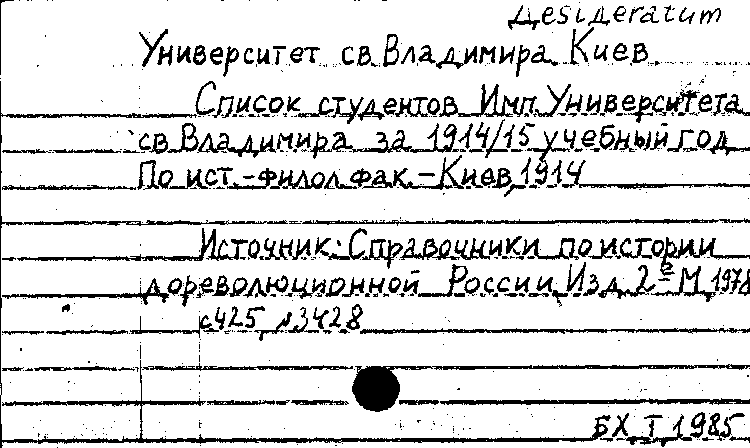 Дesiдeratum
Университет св. Владимира. Киев.
Список студентов Имп. Университета
св. Владимира за 1914/15 учебный год
По ист.-филол. фак. – Киев, 1914
Источник: Справочники по истории
дореволюционной России. Изд. 2е М, 1978
с425, №3428
БХ, I, 1985